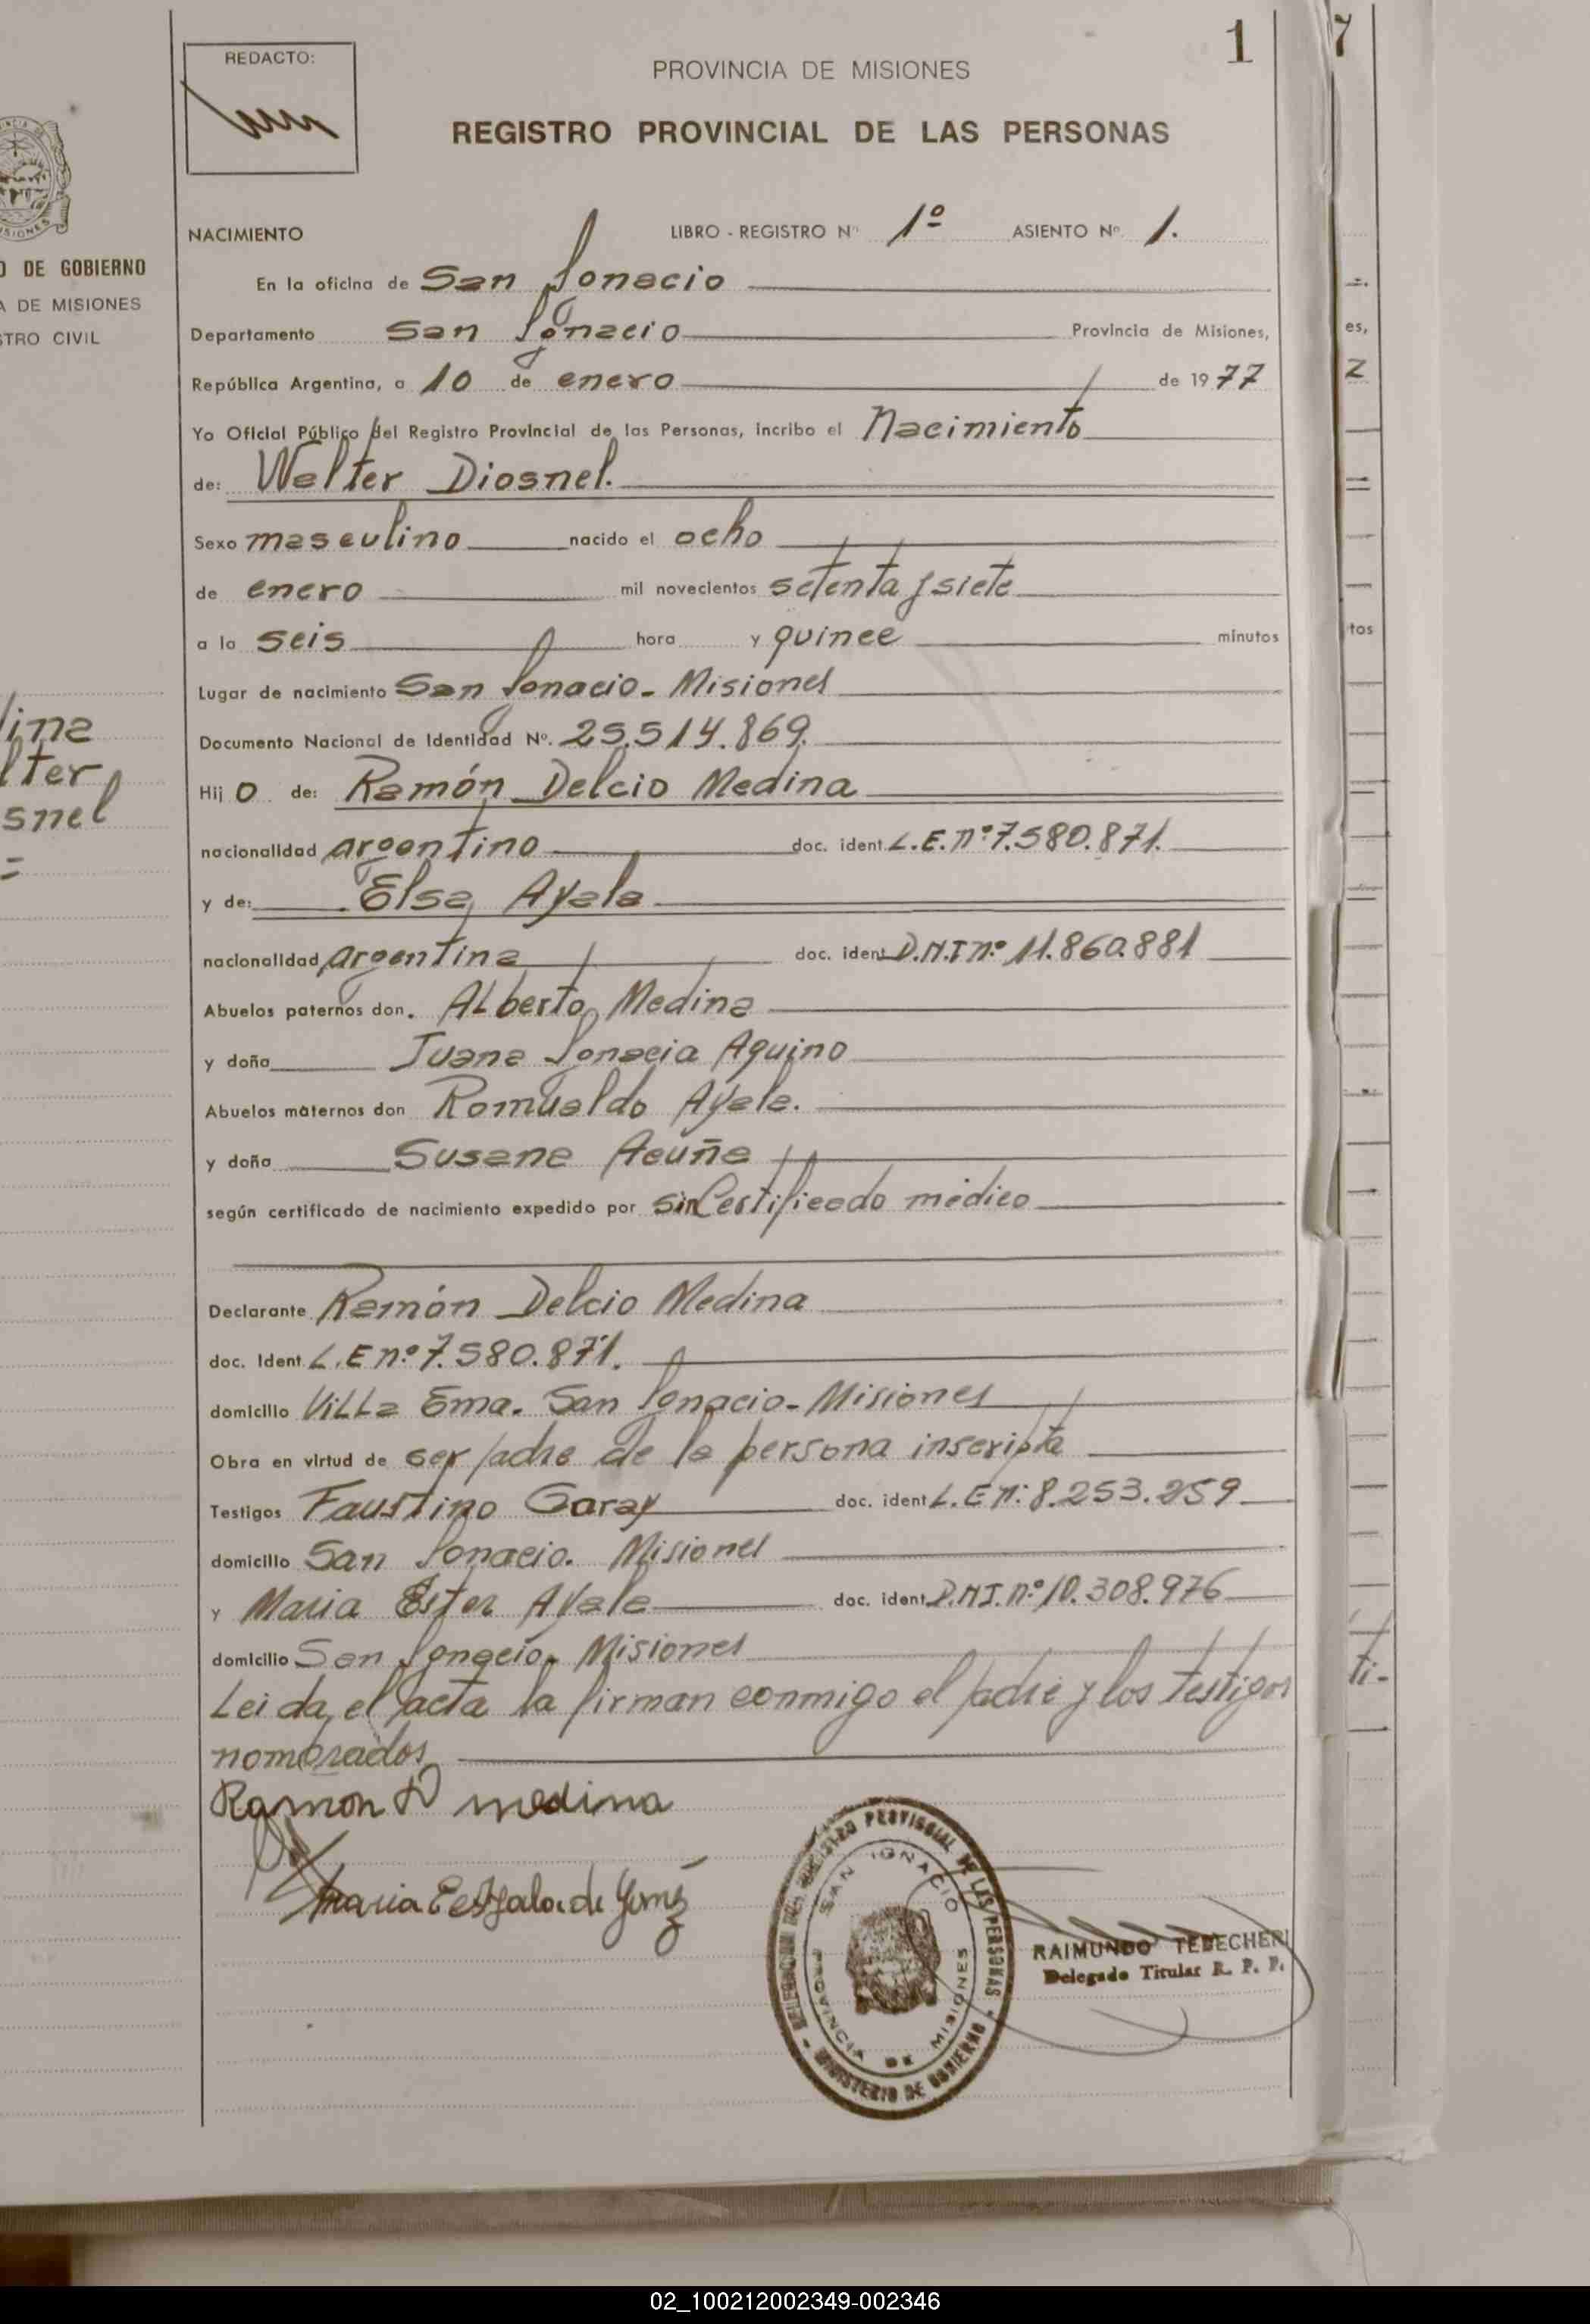 1
7
REDACTO:
PROVINCIA DE MISIONES
REGISTRO PROVINCIAL DE LAS PERSONAS
NACIMIENTO LIBRO - REGISTRO Nº 1º ASIENTO Nº 1.
DE GOBIERNO
DE MISIONES
CIVIL
En la oficina de San Ignacio
Departamento San Ignacio Provincia de Misiones,
República Argentina, a 10 de enero de 1977
Yo Oficial Público del Registro Provincial de las Personas, incribo el Nacimiento
de: Walter Diosnel.
Sexo masculino nacido el ocho
de enero mil novecientos setenta y siete
a la seis hora y quince minutos
Lugar de nacimiento San Ignacio - Misiones
Documento Nacional de Identidad Nº. 25.514.869.
Hijo de: Ramón Delcio Medina
nacionalidad argentino doc. ident. L.E. nº 7.580.871.
y de: Elsa Ayala
nacionalidad argentina doc. ident D.N.I nº 11.860.881
Abuelos paternos don. Alberto Medina
y doña Juana Ignacia Aquino
Abuelos maternos don Romualdo Ayala.
y doña Susana Acuña
según certificado de nacimiento expedido por sin Certificado médico
Declarante Ramón Delcio Medina
doc. Ident. L.E nº 7.580.871.
domicilio Villa Ema. San Ignacio - Misiones
Obra en virtud de ser padre de la persona inscripta
Testigos Faustino Garay doc. ident L.E nº 8.253.259
domicilio San Ignacio. Misiones
y Maria Ester Ayala doc. ident. D.N.I. nº 10.308.976
domicilio San Ignacio - Misiones
Leida el acta la firman conmigo el padre y los testigos
nombrados
Ramon D medina
DELEGACION DEL REGISTRO PROVINCIAL DE LAS PERSONAS
SAN IGNACIO
PROVINCIA DE MISIONES
MINISTERIO DE GOBIERNO
RAIMUNDO TEDECHERI
Delegado Titular R. P. P.
02_100212002349-002346